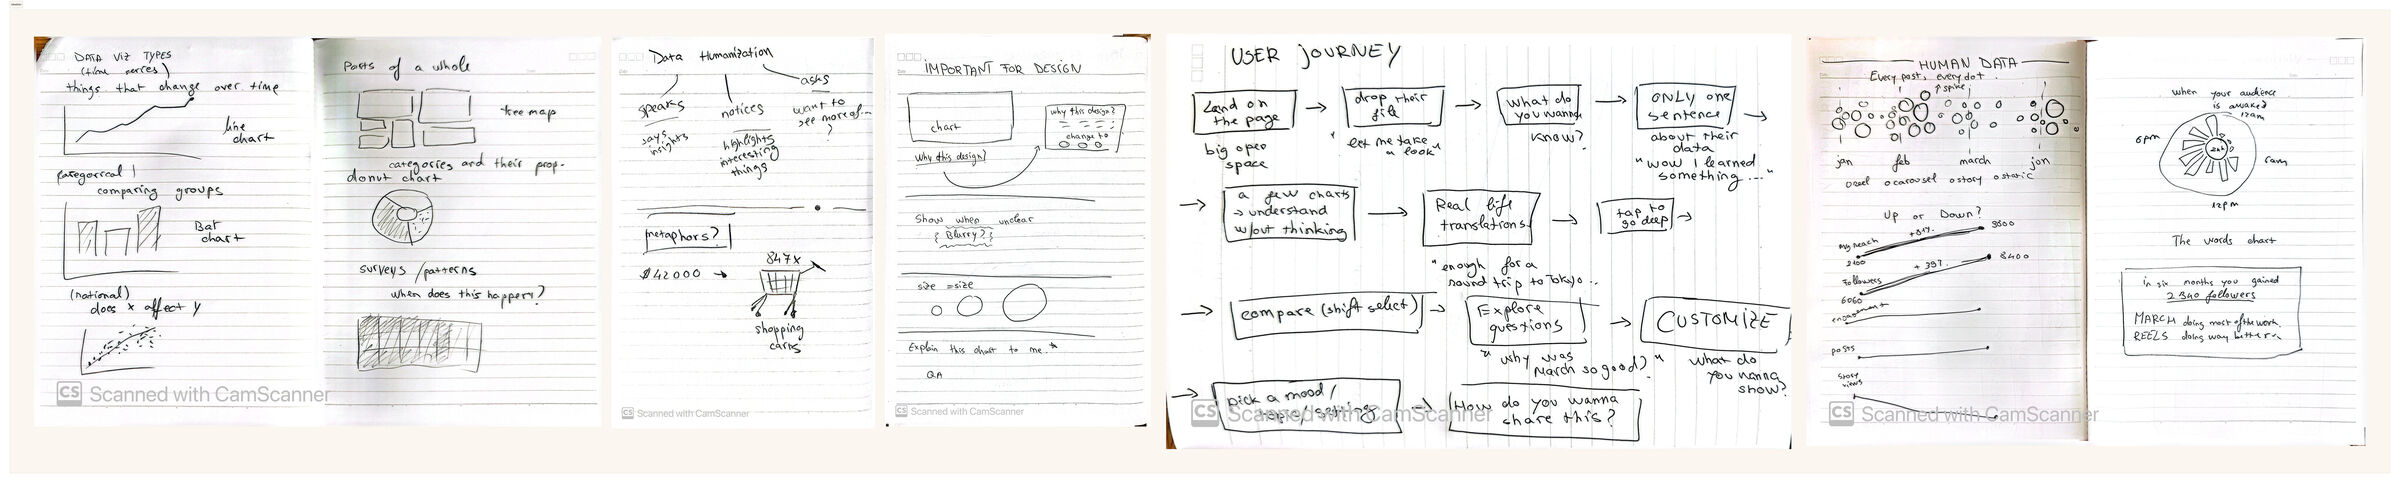 DATA VIZ TYPES
(time series)
things that change over time
line
chart
categorical
comparing groups
Bar
chart
does x affect y
CS Scanned with CamScanner
Parts of a whole
tree map
categories and their prop.
donut chart
surveys / patterns
when does this happen?
Data Humanization
speaks
says
insights
notices
highlights
interesting
things
asks
want to
see more of...
?
metaphors?
$42000
847x
shopping
carts
CS Scanned with CamScanner
IMPORTANT FOR DESIGN
chart
why this design?
why this design?
change to
Show when unclear
{ Blurry? }
size = size
Explain this chart to me. *
QA
CS Scanned with CamScanner
USER JOURNEY
Land on
the page
big open
space
drop their
file
"let me take
a look"
what do
you wanna
know?
ONLY one
sentence
about their
data
"wow I learned
something...."
a few charts
→ understand
w/out thinking
Real life
translations
"enough for a
round trip to Tokyo..
tap to
go deep
compare (shift select)
Explore
questions
"why was
March so good?"
CUSTOMIZE
what do
you wanna
show?
pick a mood /
How do you wanna
share this?
CS Scanned with CamScanner
HUMAN DATA
Every post, every dot.
↑ spike
jan
feb
march
jun
o reel o carousel o story o static
Up or Down?
my reach
2100
3800
Followers
6060
8400
engagement
posts
story
views
CS Scanned with CamScanner
when your audience
is awake?
12am
6pm
6am
12pm
The words chart
in six months you gained
2340 followers
MARCH doing most of the work.
REELS doing way better